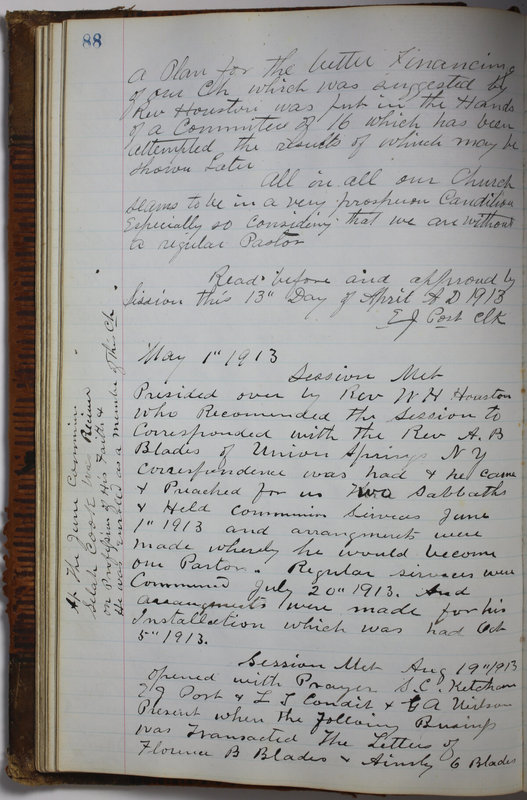 88
a Plan for the better Financing
of our Ch which was suggested by
Rev Houston was put in the Hands
of a Committee of 16 which has been
attempted the results of which may be
shown Later
All in all our Church
seams to be in a very prosperous Candition
Especially so Considing that we are without
a regular Pastor
Read before and approved by
Session this 13" Day of April A D 1913
E J Post Clk
May 1" 1913
Session Met
Presided over by Rev W H Houston
who Recomended the Session to
Corresponded with the Rev A. B
Blades of Union Springs N Y
Correspondence was had & he came
& Preached for us Two Sabbaths
& Held Communion Servces June
1" 1913 and arrangments were
made wherely he would become
our Pastor. Regular services were
Commenced July 20" 1913. And
arrangments were made for his
Installation which was had Oct
5" 1913.
Session Met Aug 19" 1913
opened with Prayer S. C. Ketcham
E J Post & L J Condit & G A
Present when the following Busings
was Transacted The Letters of
Florence B Blades & G Blades
At The June Communion
Selah Cook was
on Profession of His Faith &
He was Enrolled as a member of the Ch